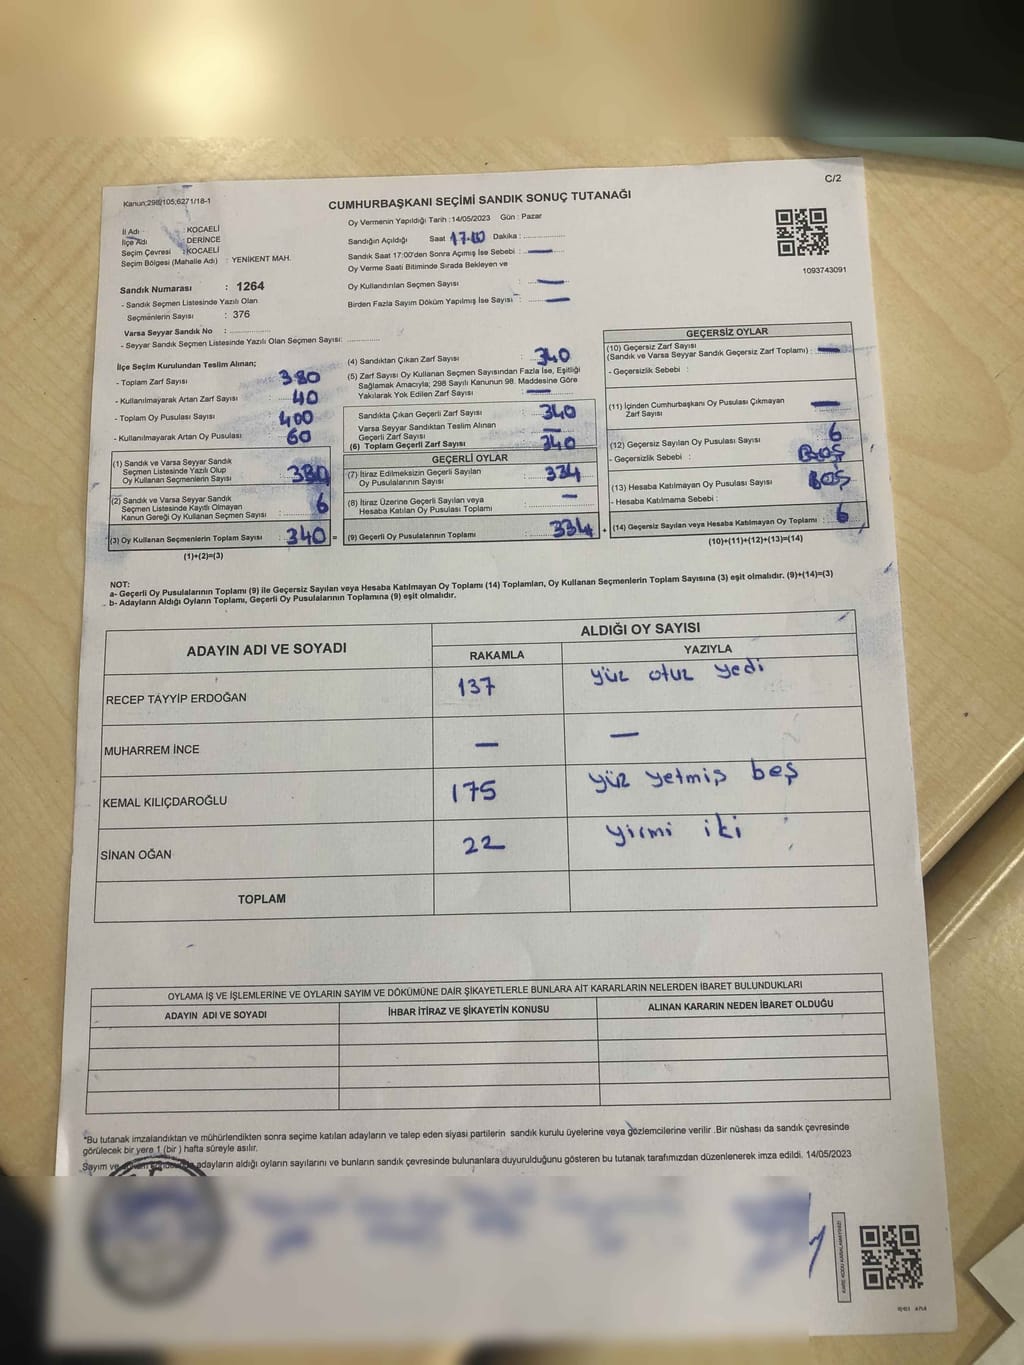 Kanun;298/105;6271/18-1
C/2
CUMHURBAŞKANI SEÇİMİ SANDIK SONUÇ TUTANAĞI
İl Adı : KOCAELİ
İlçe Adı : DERİNCE
Seçim Çevresi : KOCAELİ
Seçim Bölgesi (Mahalle Adı) : YENİKENT MAH.
Sandık Numarası : 1264
- Sandık Seçmen Listesinde Yazılı Olan
Seçmenlerin Sayısı : 376
Varsa Seyyar Sandık No : ................
- Seyyar Sandık Seçmen Listesinde Yazılı Olan Seçmen Sayısı: ................
Oy Vermenin Yapıldığı Tarih :14/05/2023 Gün : Pazar
Sandığın Açıldığı Saat 17.00 Dakika : ................
Sandık Saat 17:00'den Sonra Açımış İse Sebebi : —
Oy Verme Saati Bitiminde Sırada Bekleyen ve
Oy Kullandırılan Seçmen Sayısı : —
Birden Fazla Sayım Döküm Yapılmış İse Sayısı : —
1093743091
İlçe Seçim Kurulundan Teslim Alınan;
- Toplam Zarf Sayısı : 380
- Kullanılmayarak Artan Zarf Sayısı : 40
- Toplam Oy Pusulası Sayısı : 400
- Kullanılmayarak Artan Oy Pusulası : 60
(1) Sandık ve Varsa Seyyar Sandık
Seçmen Listesinde Yazılı Olup
Oy Kullanan Seçmenlerin Sayısı :
(2) Sandık ve Varsa Seyyar Sandık
Seçmen Listesinde Kayıtlı Olmayan
Kanun Gereği Oy Kullanan Seçmen Sayısı : 6
(3) Oy Kullanan Seçmenlerin Toplam Sayısı : 340 =
(1)+(2)=(3)
(4) Sandıktan Çıkan Zarf Sayısı : 340
(5) Zarf Sayısı Oy Kullanan Seçmen Sayısından Fazla İse, Eşitliği
Sağlamak Amacıyla; 298 Sayılı Kanunun 98. Maddesine Göre
Yakılarak Yok Edilen Zarf Sayısı : —
Sandıkta Çıkan Geçerli Zarf Sayısı : 340
Varsa Seyyar Sandıktan Teslim Alınan
Geçerli Zarf Sayısı : —
(6) Toplam Geçerli Zarf Sayısı : 340
GEÇERLİ OYLAR
(7) İtiraz Edilmeksizin Geçerli Sayılan
Oy Pusulalarının Sayısı : 334
(8) İtiraz Üzerine Geçerli Sayılan veya
Hesaba Katılan Oy Pusulası Toplamı : —
(9) Geçerli Oy Pusulalarının Toplamı : 334 +
GEÇERSİZ OYLAR
(10) Geçersiz Zarf Sayısı
(Sandık ve Varsa Seyyar Sandık Geçersiz Zarf Toplamı) : —
- Geçersizlik Sebebi :
(11) İçinden Cumhurbaşkanı Oy Pusulası Çıkmayan
Zarf Sayısı : —
(12) Geçersiz Sayılan Oy Pusulası Sayısı : 6
- Geçersizlik Sebebi : BOŞ
(13) Hesaba Katılmayan Oy Pusulası Sayısı : BOŞ
- Hesaba Katılmama Sebebi :
(14) Geçersiz Sayılan veya Hesaba Katılmayan Oy Toplamı : 6
(10)+(11)+(12)+(13)=(14)
NOT:
a- Geçerli Oy Pusulalarının Toplamı (9) ile Geçersiz Sayılan veya Hesaba Katılmayan Oy Toplamı (14) Toplamları, Oy Kullanan Seçmenlerin Toplam Sayısına (3) eşit olmalıdır. (9)+(14)=(3)
b- Adayların Aldığı Oyların Toplamı, Geçerli Oy Pusulalarının Toplamına (9) eşit olmalıdır.
ADAYIN ADI VE SOYADI ALDIĞI OY SAYISI
RAKAMLA YAZIYLA
RECEP TAYYİP ERDOĞAN 137 yüz otuz yedi
MUHARREM İNCE — —
KEMAL KILIÇDAROĞLU 175 yüz yetmiş beş
SİNAN OĞAN 22 yirmi iki
TOPLAM
OYLAMA İŞ VE İŞLEMLERİNE VE OYLARIN SAYIM VE DÖKÜMÜNE DAİR ŞİKAYETLERLE BUNLARA AİT KARARLARIN NELERDEN İBARET BULUNDUKLARI
ADAYIN ADI VE SOYADI İHBAR İTİRAZ VE ŞİKAYETİN KONUSU ALINAN KARARIN NEDEN İBARET OLDUĞU
*Bu tutanak imzalandıktan ve mühürlendikten sonra seçime katılan adayların ve talep eden siyasi partilerin sandık kurulu üyelerine veya gözlemcilerine verilir .Bir nüshası da sandık çevresinde
görülecek bir yere 1 (bir ) hafta süreyle asılır.
Sayım ve adayların aldığı oyların sayılarını ve bunların sandık çevresinde bulunanlara duyurulduğunu gösteren bu tutanak tarafımızdan düzenlenerek imza edildi. 14/05/2023